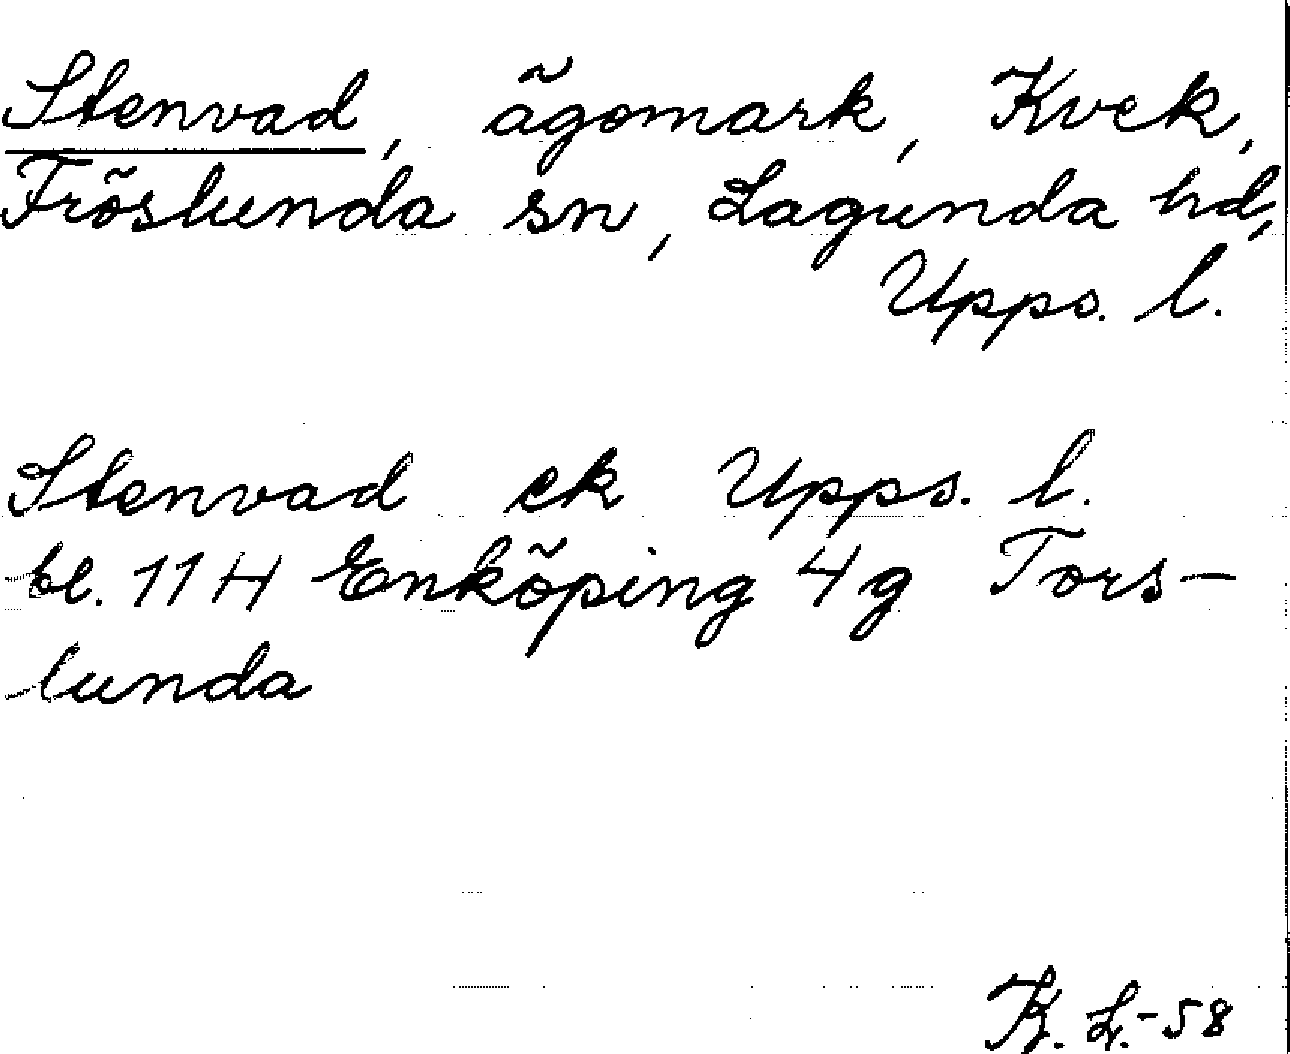 Stenvad, ägomark, Kvek,
Fröslunda sn, Lagunda hd,
Upps. l.
Stenvad ek Upps. l.
bl. 11 H Enköping 4g Tors-
lunda
K. L.-58